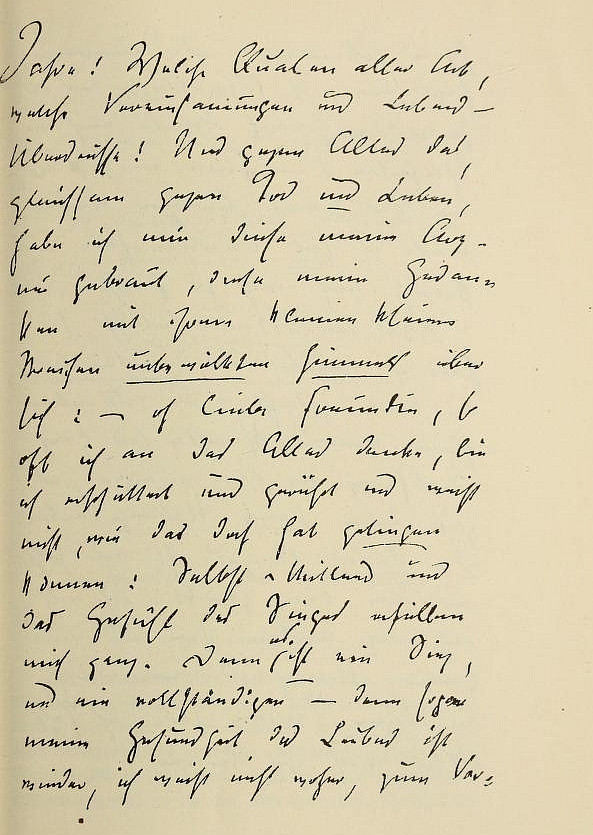 Jahre! Welche Qualen aller Art,
welche Vereinsamungen und Lebens-
Überdrüsse! Und gegen Alles das,
gleichsam gegen Tod und Leben,
habe ich mir diese meine Arz-
nei gebraut, diese meine Gedan-
ken mit ihrem kleinen kleinen
Streifen unbewölkten Himmels über
sich: — oh liebe Freundin, so
oft ich an das Alles denke, bin
ich erschüttert und gerührt und weiß
nicht, wie das doch hat gelingen
können: Selbst-Mitleid und
das Gefühl des Sieges erfüllen
mich ganz. Denn es ist ein Sieg,
und ein vollständiger — denn sogar
meine Gesundheit des Leibes ist
wieder, ich weiß nicht woher, zum Vor-